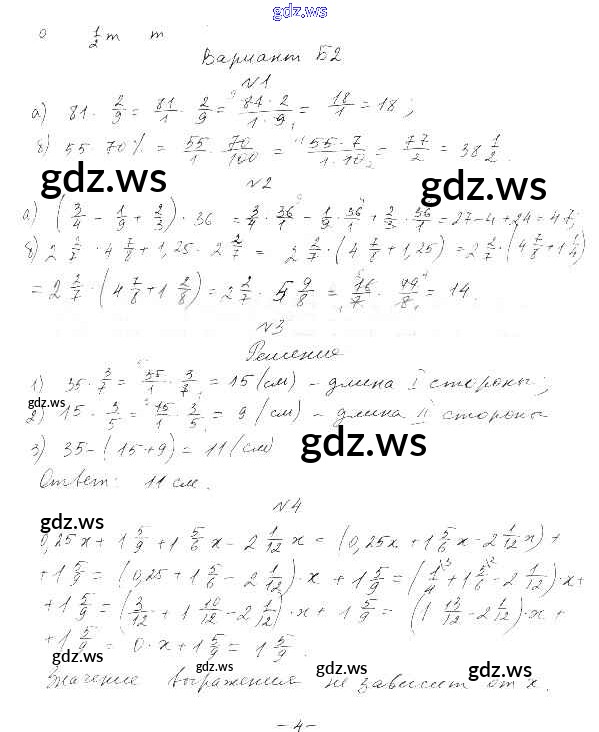 gdz.ws
0 1/2 m m
Вариант Б2
№1
а) 81 · 2/9 = 81/1 · 2/9 = 81 · 2 / 1 · 9 = 18/1 = 18 ;
б) 55 · 70% = 55/1 · 70/100 = 55 · 7 / 1 · 10 = 77/2 = 38 1/2 .
gdz.ws gdz.ws
№2
а) (3/4 - 1/9 + 2/3) · 36 = 3/4 · 36/1 - 1/9 · 36/1 + 2/3 · 36/1 = 27 - 4 + 24 = 47;
б) 2 2/7 · 4 7/8 + 1,25 · 2 2/7 = 2 2/7 · (4 7/8 + 1,25) = 2 2/7 · (4 7/8 + 1 1/4)
= 2 2/7 · (4 7/8 + 1 2/8) = 2 2/7 · 5 9/8 = 16/7 · 49/8 = 14.
№3
Решение
1) 35 · 3/7 = 35/1 · 3/7 = 15 (см) - длина I стороны;
gdz.ws
2) 15 · 3/5 = 15/1 · 3/5 = 9 (см) - длина II стороны
3) 35 - (15 + 9) = 11 (см)
gdz.ws
Ответ: 11 см.
№4
gdz.ws
0,25x + 1 5/9 + 1 5/6 x - 2 1/12 x = (0,25x + 1 5/6 x - 2 1/12 x) +
+ 1 5/9 = (0,25 + 1 5/6 - 2 1/12) · x + 1 5/9 = (1/4 + 1 5/6 - 2 1/12) · x +
+ 1 5/9 = (3/12 + 1 10/12 - 2 1/12) · x + 1 5/9 = (1 13/12 - 2 1/12) · x +
+ 1 5/9 = 0 · x + 1 5/9 = 1 5/9 .
gdz.ws gdz.ws gdz.ws gdz.ws
Значение выражения не зависит от x.
- 4 -